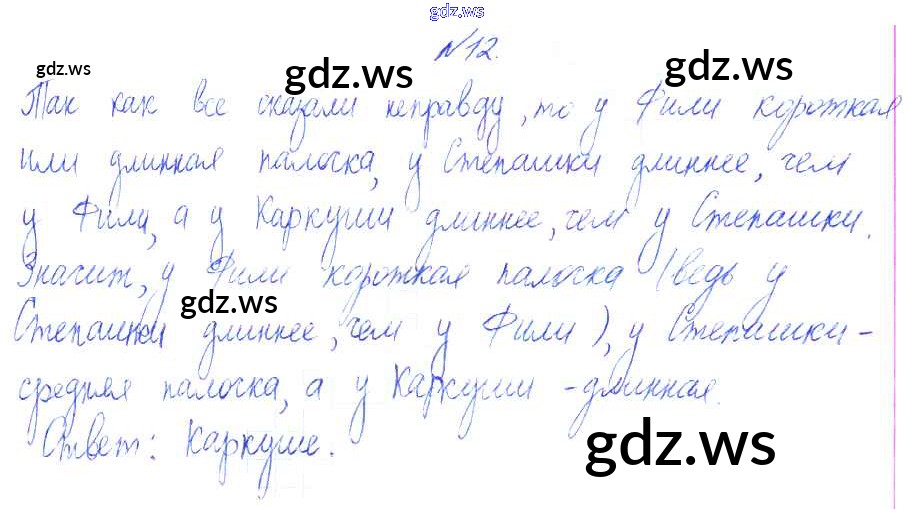 gdz.ws
№12.
gdz.ws
gdz.ws
gdz.ws
Так как все сказали неправду, то у Фили короткая
или длинная палоска, у Степашки длиннее, чем
у Фили, а у Каркуши длиннее, чем у Степашки.
Значит, у Фили короткая палоска (ведь у
gdz.ws
Степашки длиннее, чем у Фили), у Степашки -
средняя палоска, а у Каркуши - длинная.
Ответ: Каркуше.
gdz.ws